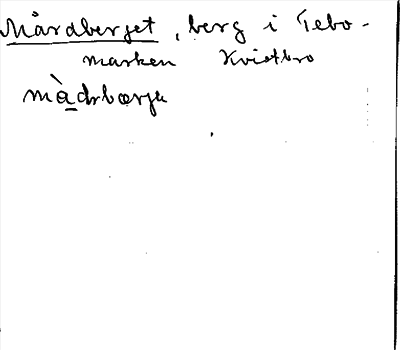 Mårdberget, berg i Tebo-
marken Kvistbro
mà̱dsbærje